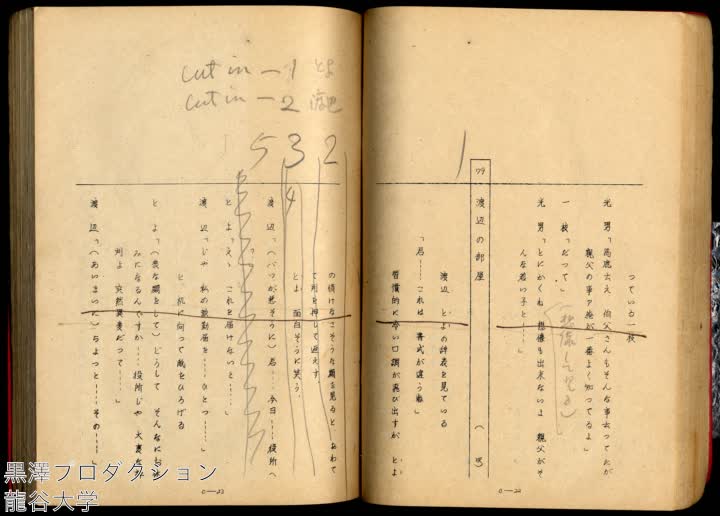 つている一枝
光男「馬鹿云え 伯父さんもそんな事云つてたが
親父の事ァ俺が一番よく知つてるよ」
一枝「だつて」
光男「とにかくね 想像も出来ないよ 親父がそ
んな若い子と……」
79 渡辺の部屋
渡辺 とよの辞表を見ている
「君……これは 書式が違うね」
習慣的に冷い口調が飛び出すが とよ
1
0—22
cut in — 1 とよ
cut in — 2 渡辺
2
3
4
5
の情けなそうな顔を見ると あわて
て判を押して返えす
とよ 面白そうに笑う
渡辺「(バツが悪そうに)君……今日……役所へ
……」
とよ「えゝ これを届けないと……」
渡辺「じや 私の欠勤届を……ひとつ……」
と 机に向つて紙をひろげる
とよ「(変な顔をして)どうして そんなにお休
みになるんですか……役所じや 大変な評
判よ 突然異変だつて……」
渡辺「(あいまいに)ちよつと……その……」
0—23
黒澤プロダクション
龍谷大学